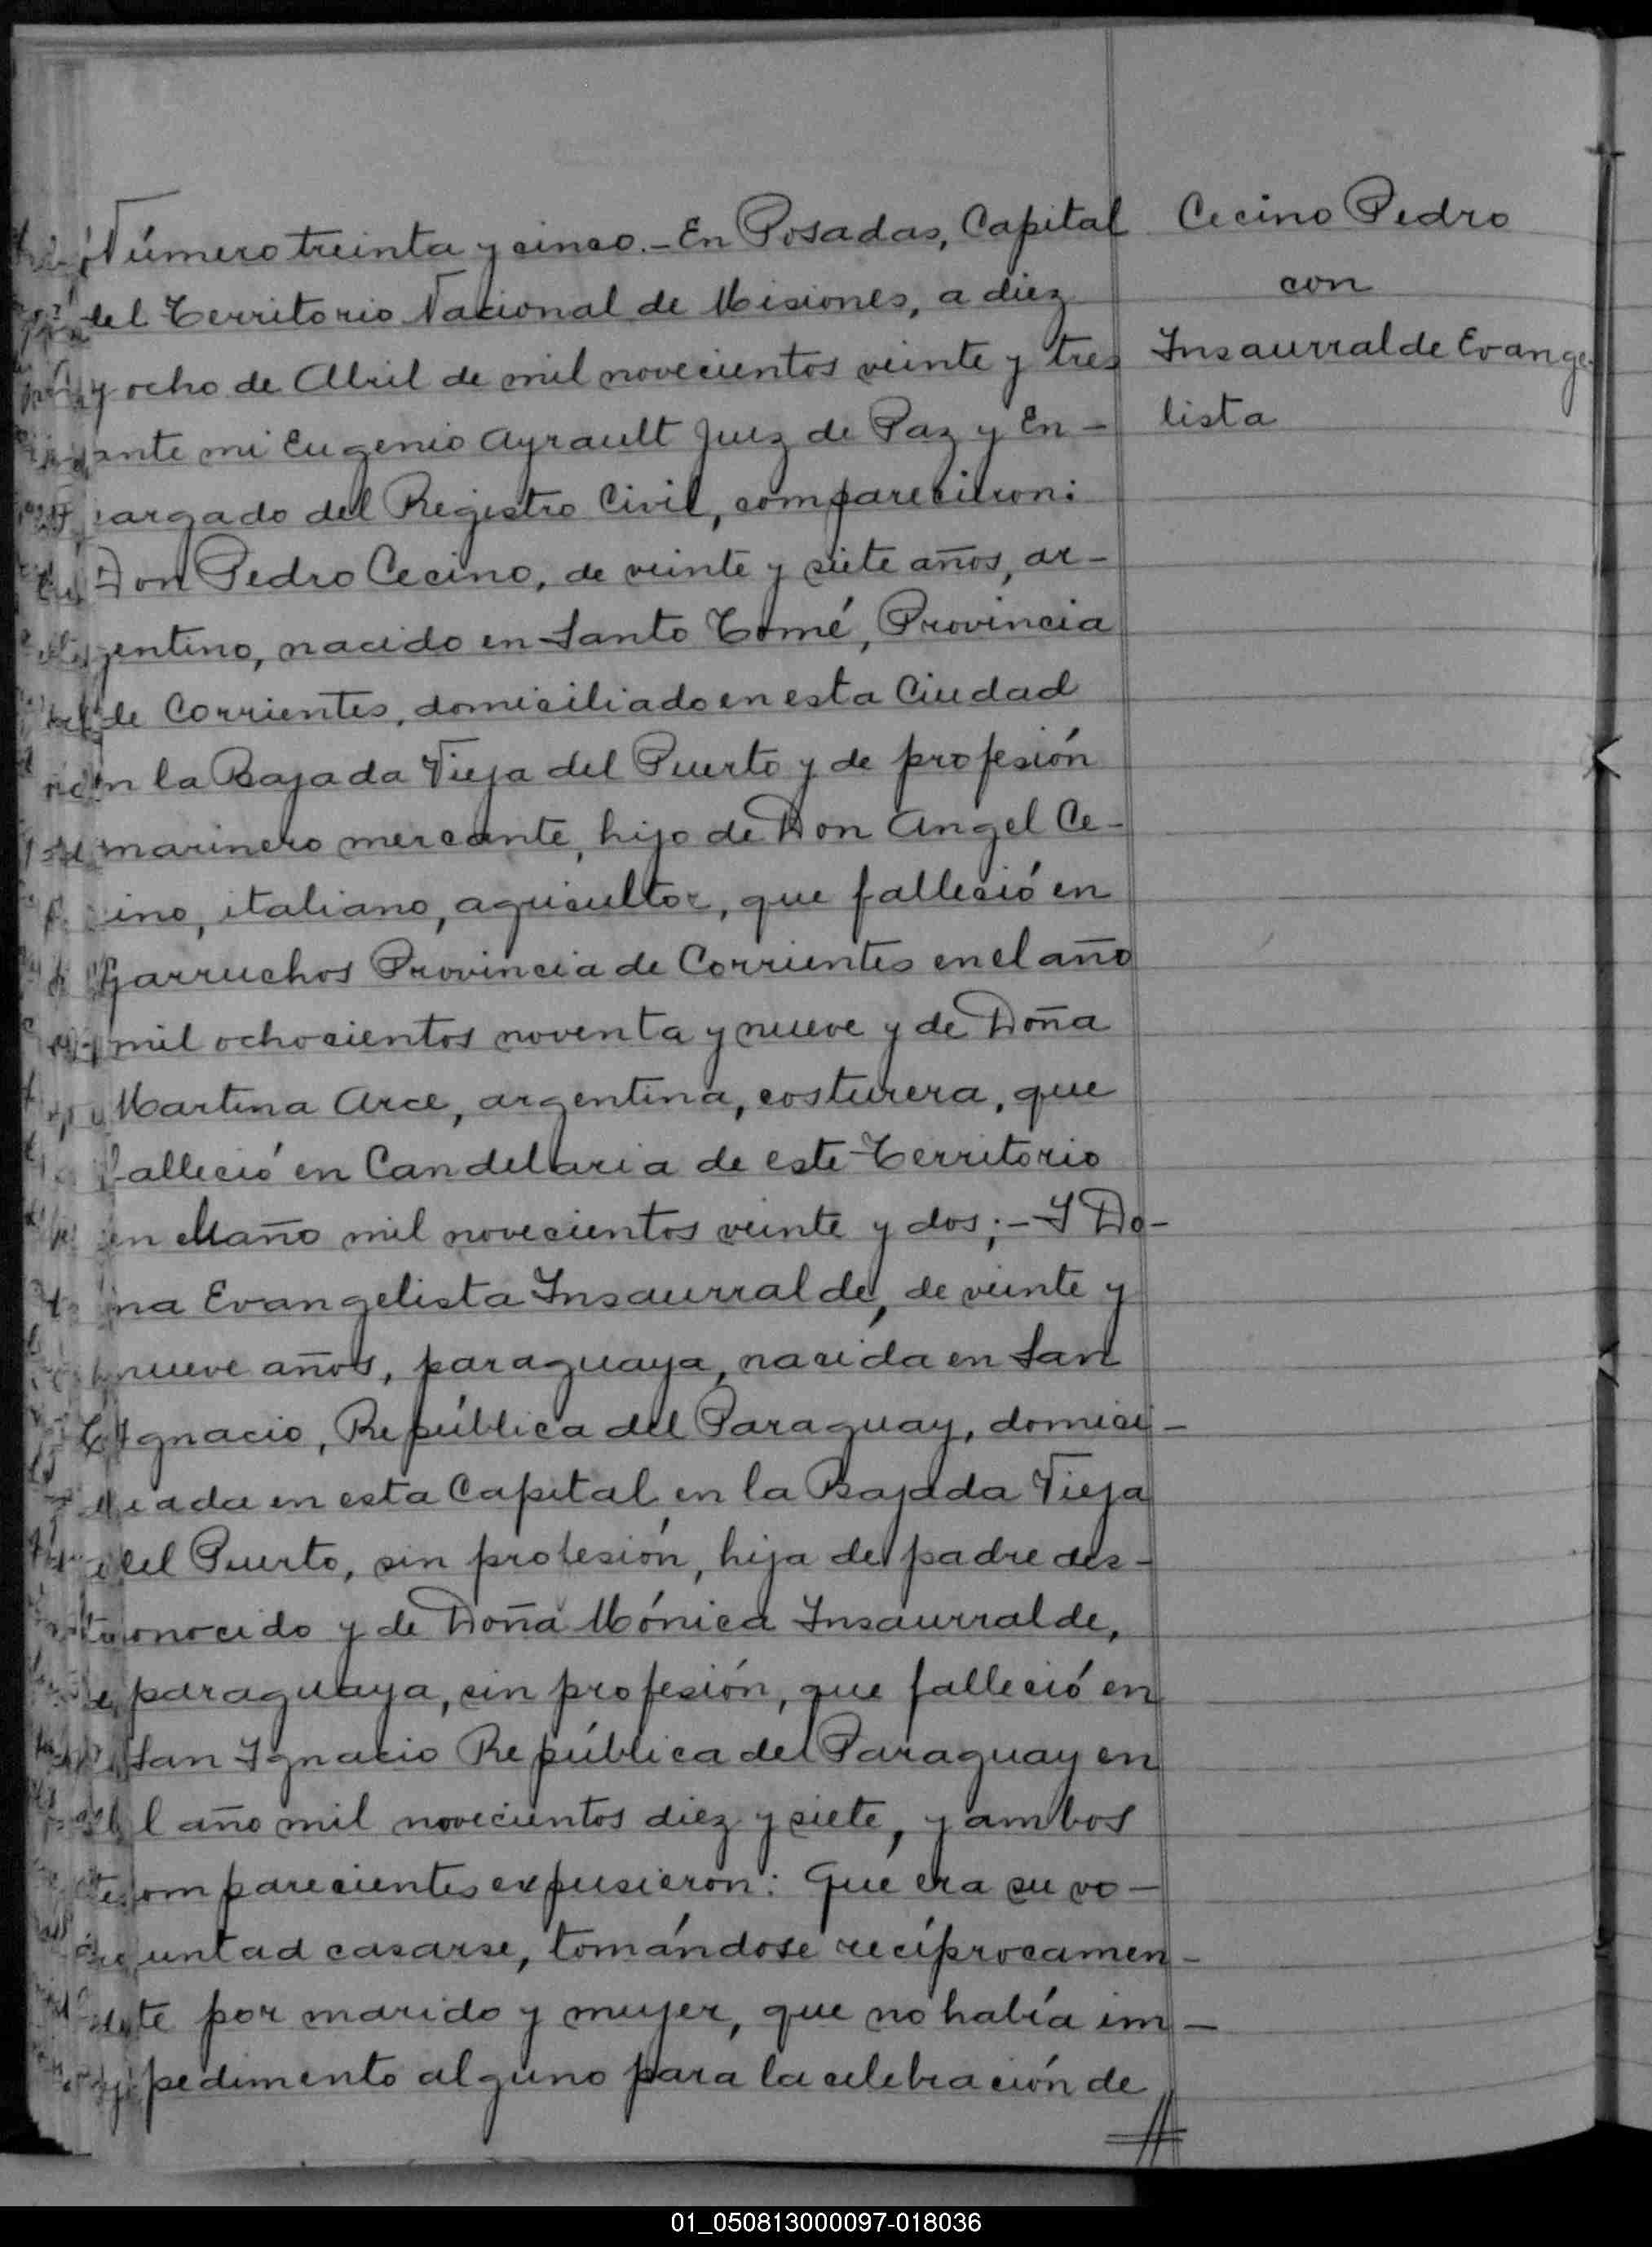 Cecino Pedro
con
Insaurralde Evange-
lista
Número treinta y cinco.- En Posadas, Capital
del Territorio Nacional de Misiones, a diez
y ocho de Abril de mil novecientos veinte y tres
ante mi Eugenio Ayrault Juez de Paz y En-
cargado del Registro Civil, comparecieron:
Don Pedro Cecino, de veinte y siete años, ar-
gentino, nacido en Santo Tomé, Provincia
de Corrientes, domiciliado en esta Ciudad
en la Bajada Vieja del Puerto y de profesión
marinero mercante, hijo de Don Angel Ce-
cino, italiano, agricultor, que falleció en
Garruchos Provincia de Corrientes en el año
mil ochocientos noventa y nueve y de Doña
Martina Arce, argentina, costurera, que
falleció en Candelaria de este Territorio
en el año mil novecientos veinte y dos;- Y Do-
ña Evangelista Insaurralde, de veinte y
nueve años, paraguaya, nacida en San
Ignacio, República del Paraguay, domici-
liada en esta Capital en la Bajada Vieja
del Puerto, sin profesión, hija de padre des-
conocido y de Doña Mónica Insaurralde,
paraguaya, sin profesión, que falleció en
San Ignacio República del Paraguay en
el año mil novecientos diez y siete, y ambos
comparecientes expusieron: Que era su vo-
luntad casarse, tomándose recíprocamen-
te por marido y mujer, que no había im-
pedimento alguno para la celebración de
01_050813000097-018036